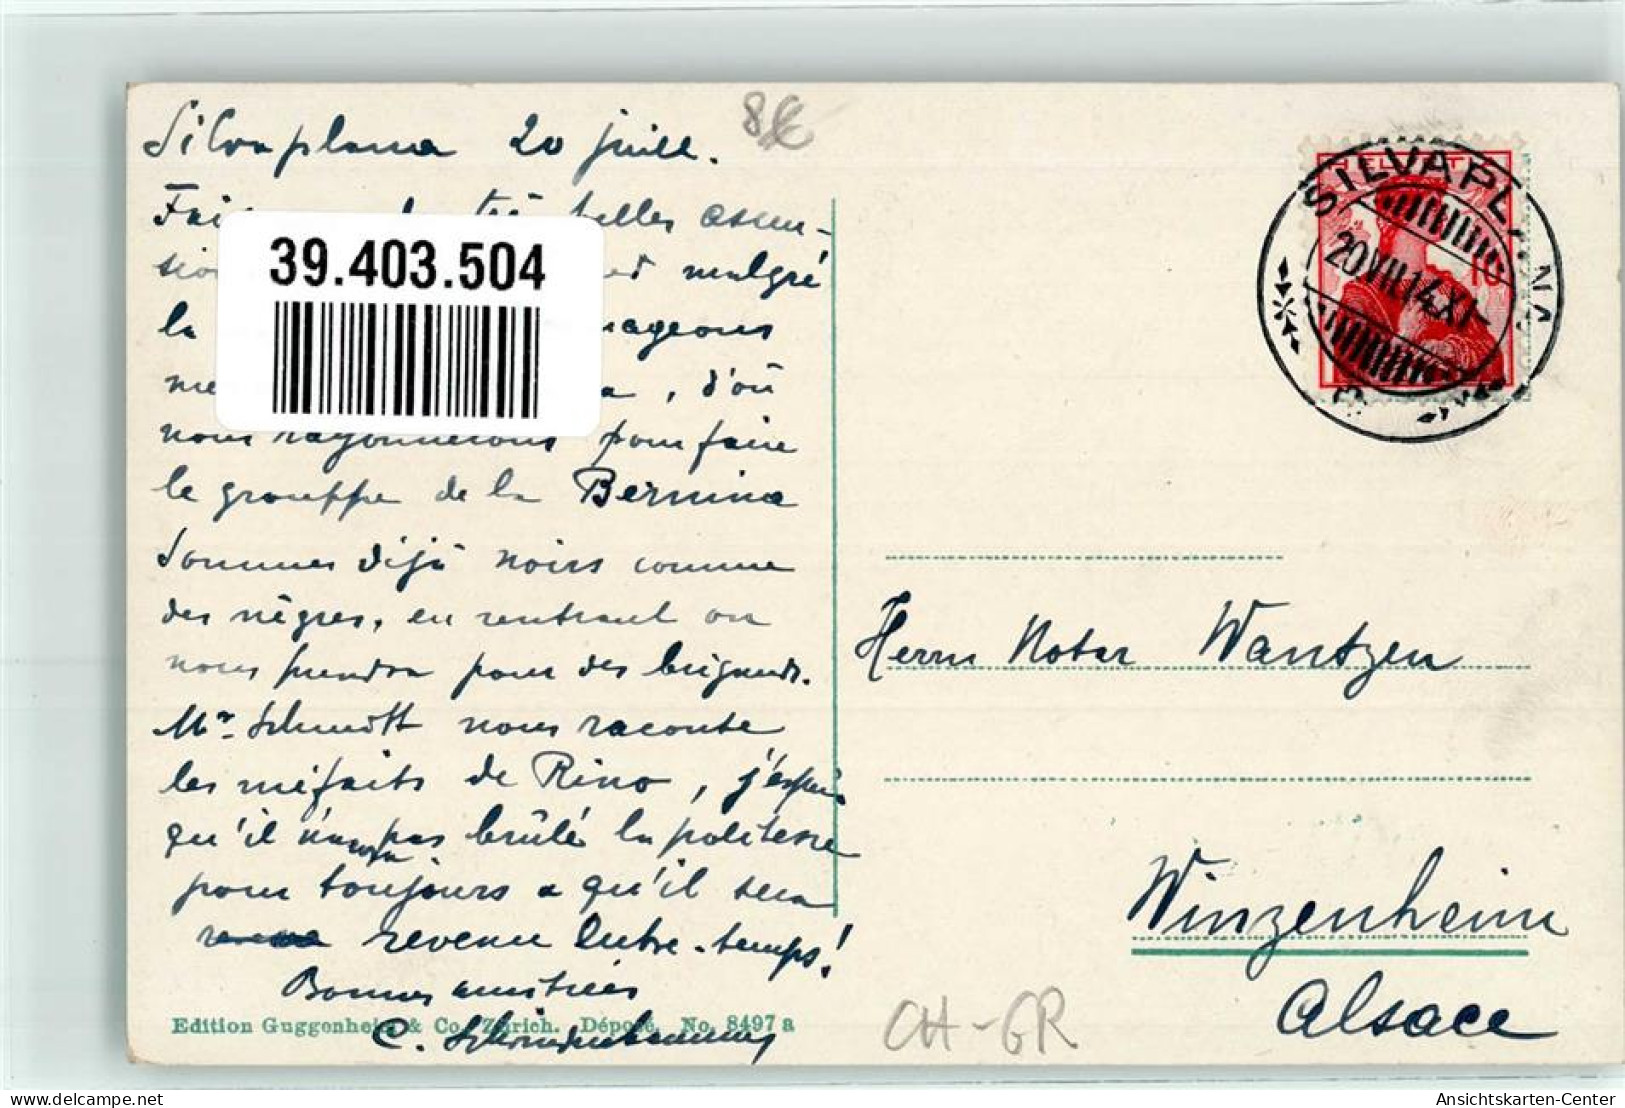 Silvaplana 20 juill.
8 €
très belles ascen-
sion malgré
la
me , d'où
nous rayonnerons pour faire
le grouppe de la Bernina
Sommes déjà noirs comme
des nègres, en rentrant on
nous prendra pour des brigands.
Mr Schmitt nous raconte
les méfaits de Rino, j'espère
qu'il n'aura pas brûlé la politesse
pour toujours & qu'il sera
revenu Entre-temps!
Bonnes amitiés
C.
Edition Guggenheim & Co., Zürich. Déposé. No. 8497 a
39.403.504
HELVETIA
10
SILVAPLANA
20.VII.14.XI-
Herrn Notar Wantzen
Winzenheim
Alsace
CH-GR
delcampe.net
Ansichtskarten-Center